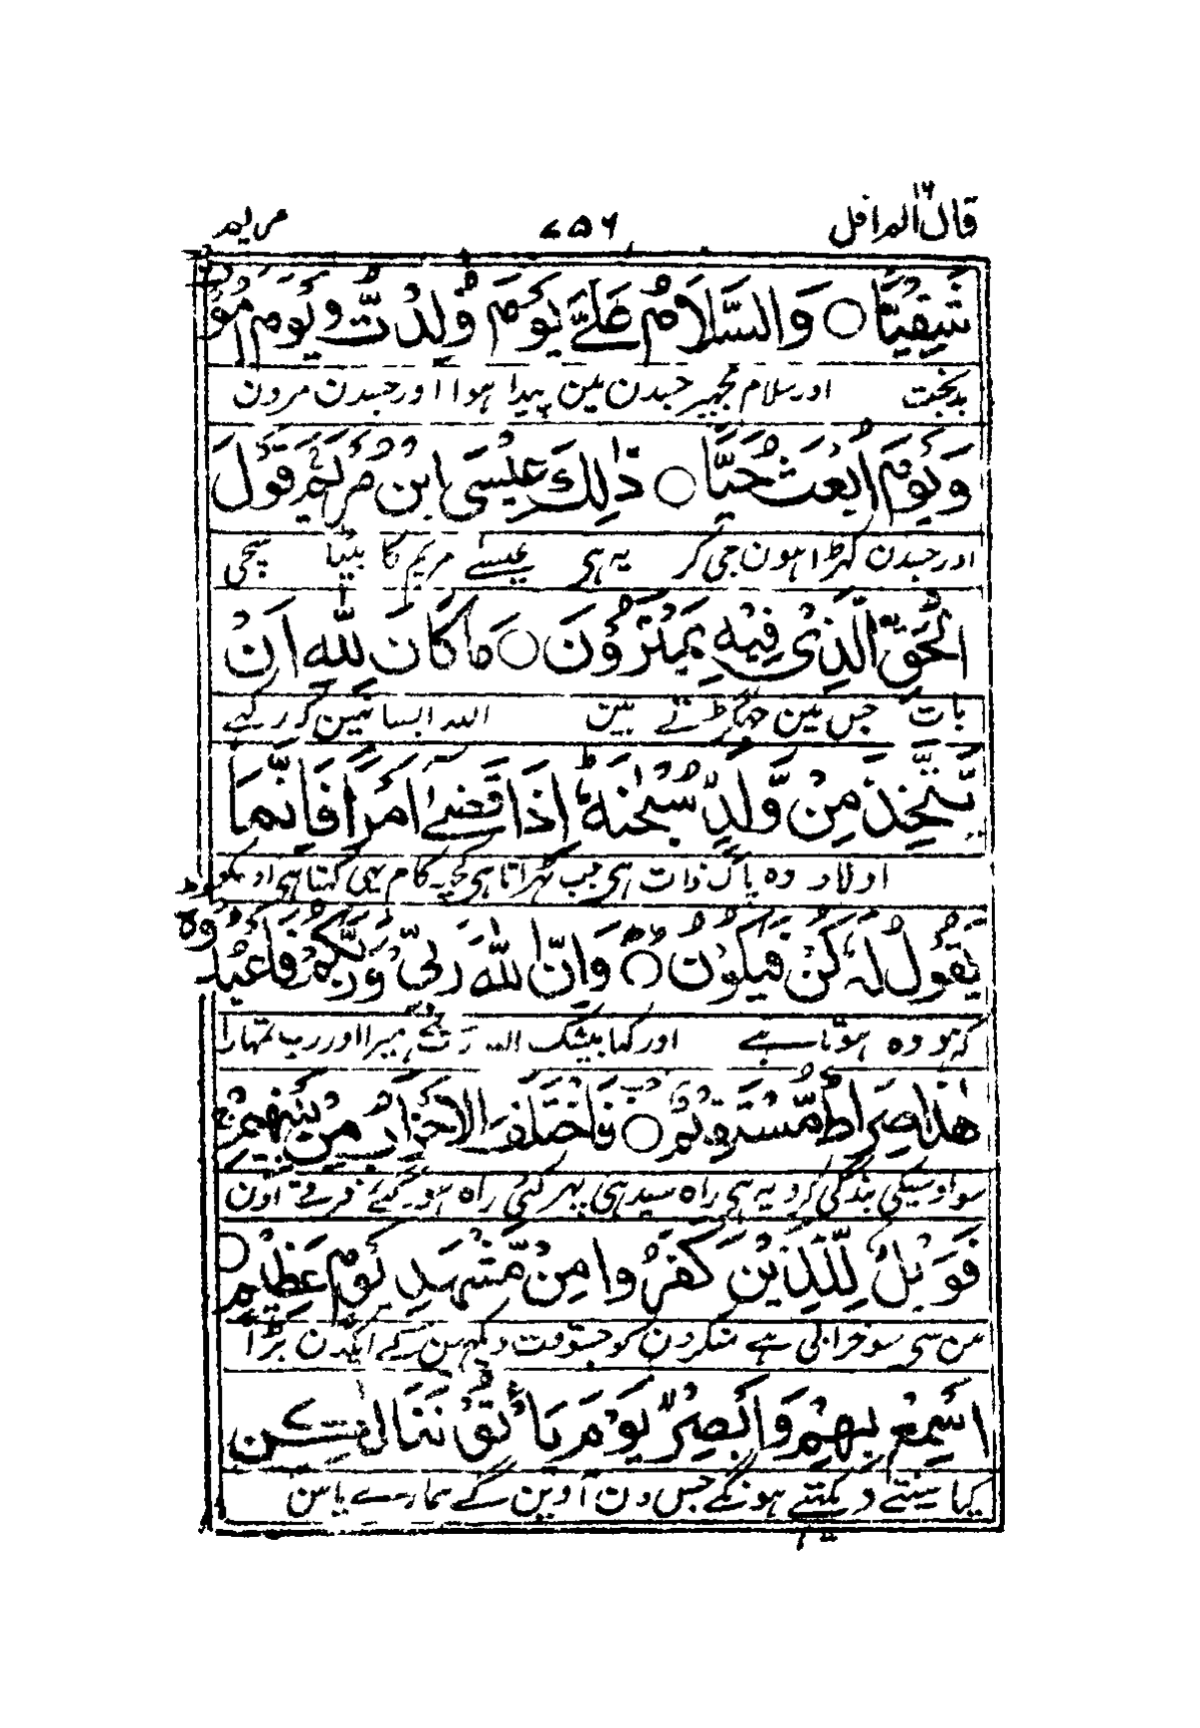 قال الم ۱۶ ۷۵۶ مریم
شَقِيًّا ○ وَالسَّلَامُ عَلَيَّ يَوْمَ وُلِدْتُّ وَيَوْمَ اَمُوْتُ
بدبخت اور سلام مجھپر جسدن مین پیدا ہوا اور جسدن مرون
وَيَوْمَ اُبْعَثُ حَيًّا ○ ذٰلِكَ عِيْسَى ابْنُ مَرْيَمَ قَوْلَ
اور جسدن کہڑا ہون جی کر یہ ہی عیسے مریم کا بیٹا سچی
الْحَقِّ الَّذِىْ فِيْهِ يَمْتَرُوْنَ ○ مَا كَانَ لِلّٰهِ اَنْ
بات جس مین جھگڑتے ہین اللہ ایسا نہین کہ رکہے
يَّتَّخِذَ مِنْ وَّلَدٍ سُبْحٰنَهٗ ط اِذَا قَضٰى اَمْرًا فَاِنَّمَا
اولاد وہ پاک ذات ہی جب ٹہراتا ہی کچہ کام یہی کہتا ہی اوسکو
يَقُوْلُ لَهٗ كُنْ فَيَكُوْنُ ○ وَاِنَّ اللّٰهَ رَبِّىْ وَرَبُّكُمْ فَاعْبُدُوْهُ ط
کہ ہو وہ ہوتا ہے اور کہا بیشک اللہ رب ہے میرا اور رب تمہارا
هٰذَا صِرَاطٌ مُّسْتَقِيْمٌ ○ فَاخْتَلَفَ الْاَحْزَابُ مِنْ بَيْنِهِمْ ج
سو اوسیکی بندگی کرو یہ ہی راہ سیدہی پہر کئی راہ ہو گئے فرقے اون
فَوَيْلٌ لِّلَّذِيْنَ كَفَرُوْا مِنْ مَّشْهَدِ يَوْمٍ عَظِيْمٍ ○
مین سی سو خرابی ہے منکرون کو جسوقت دیکہین گے ایکدن بڑا
اَسْمِعْ بِهِمْ وَاَبْصِرْ يَوْمَ يَأْتُوْنَنَا لٰكِنِ
کیا سنتے دیکہتے ہونگے جس دن آوین گے ہمارے پاس